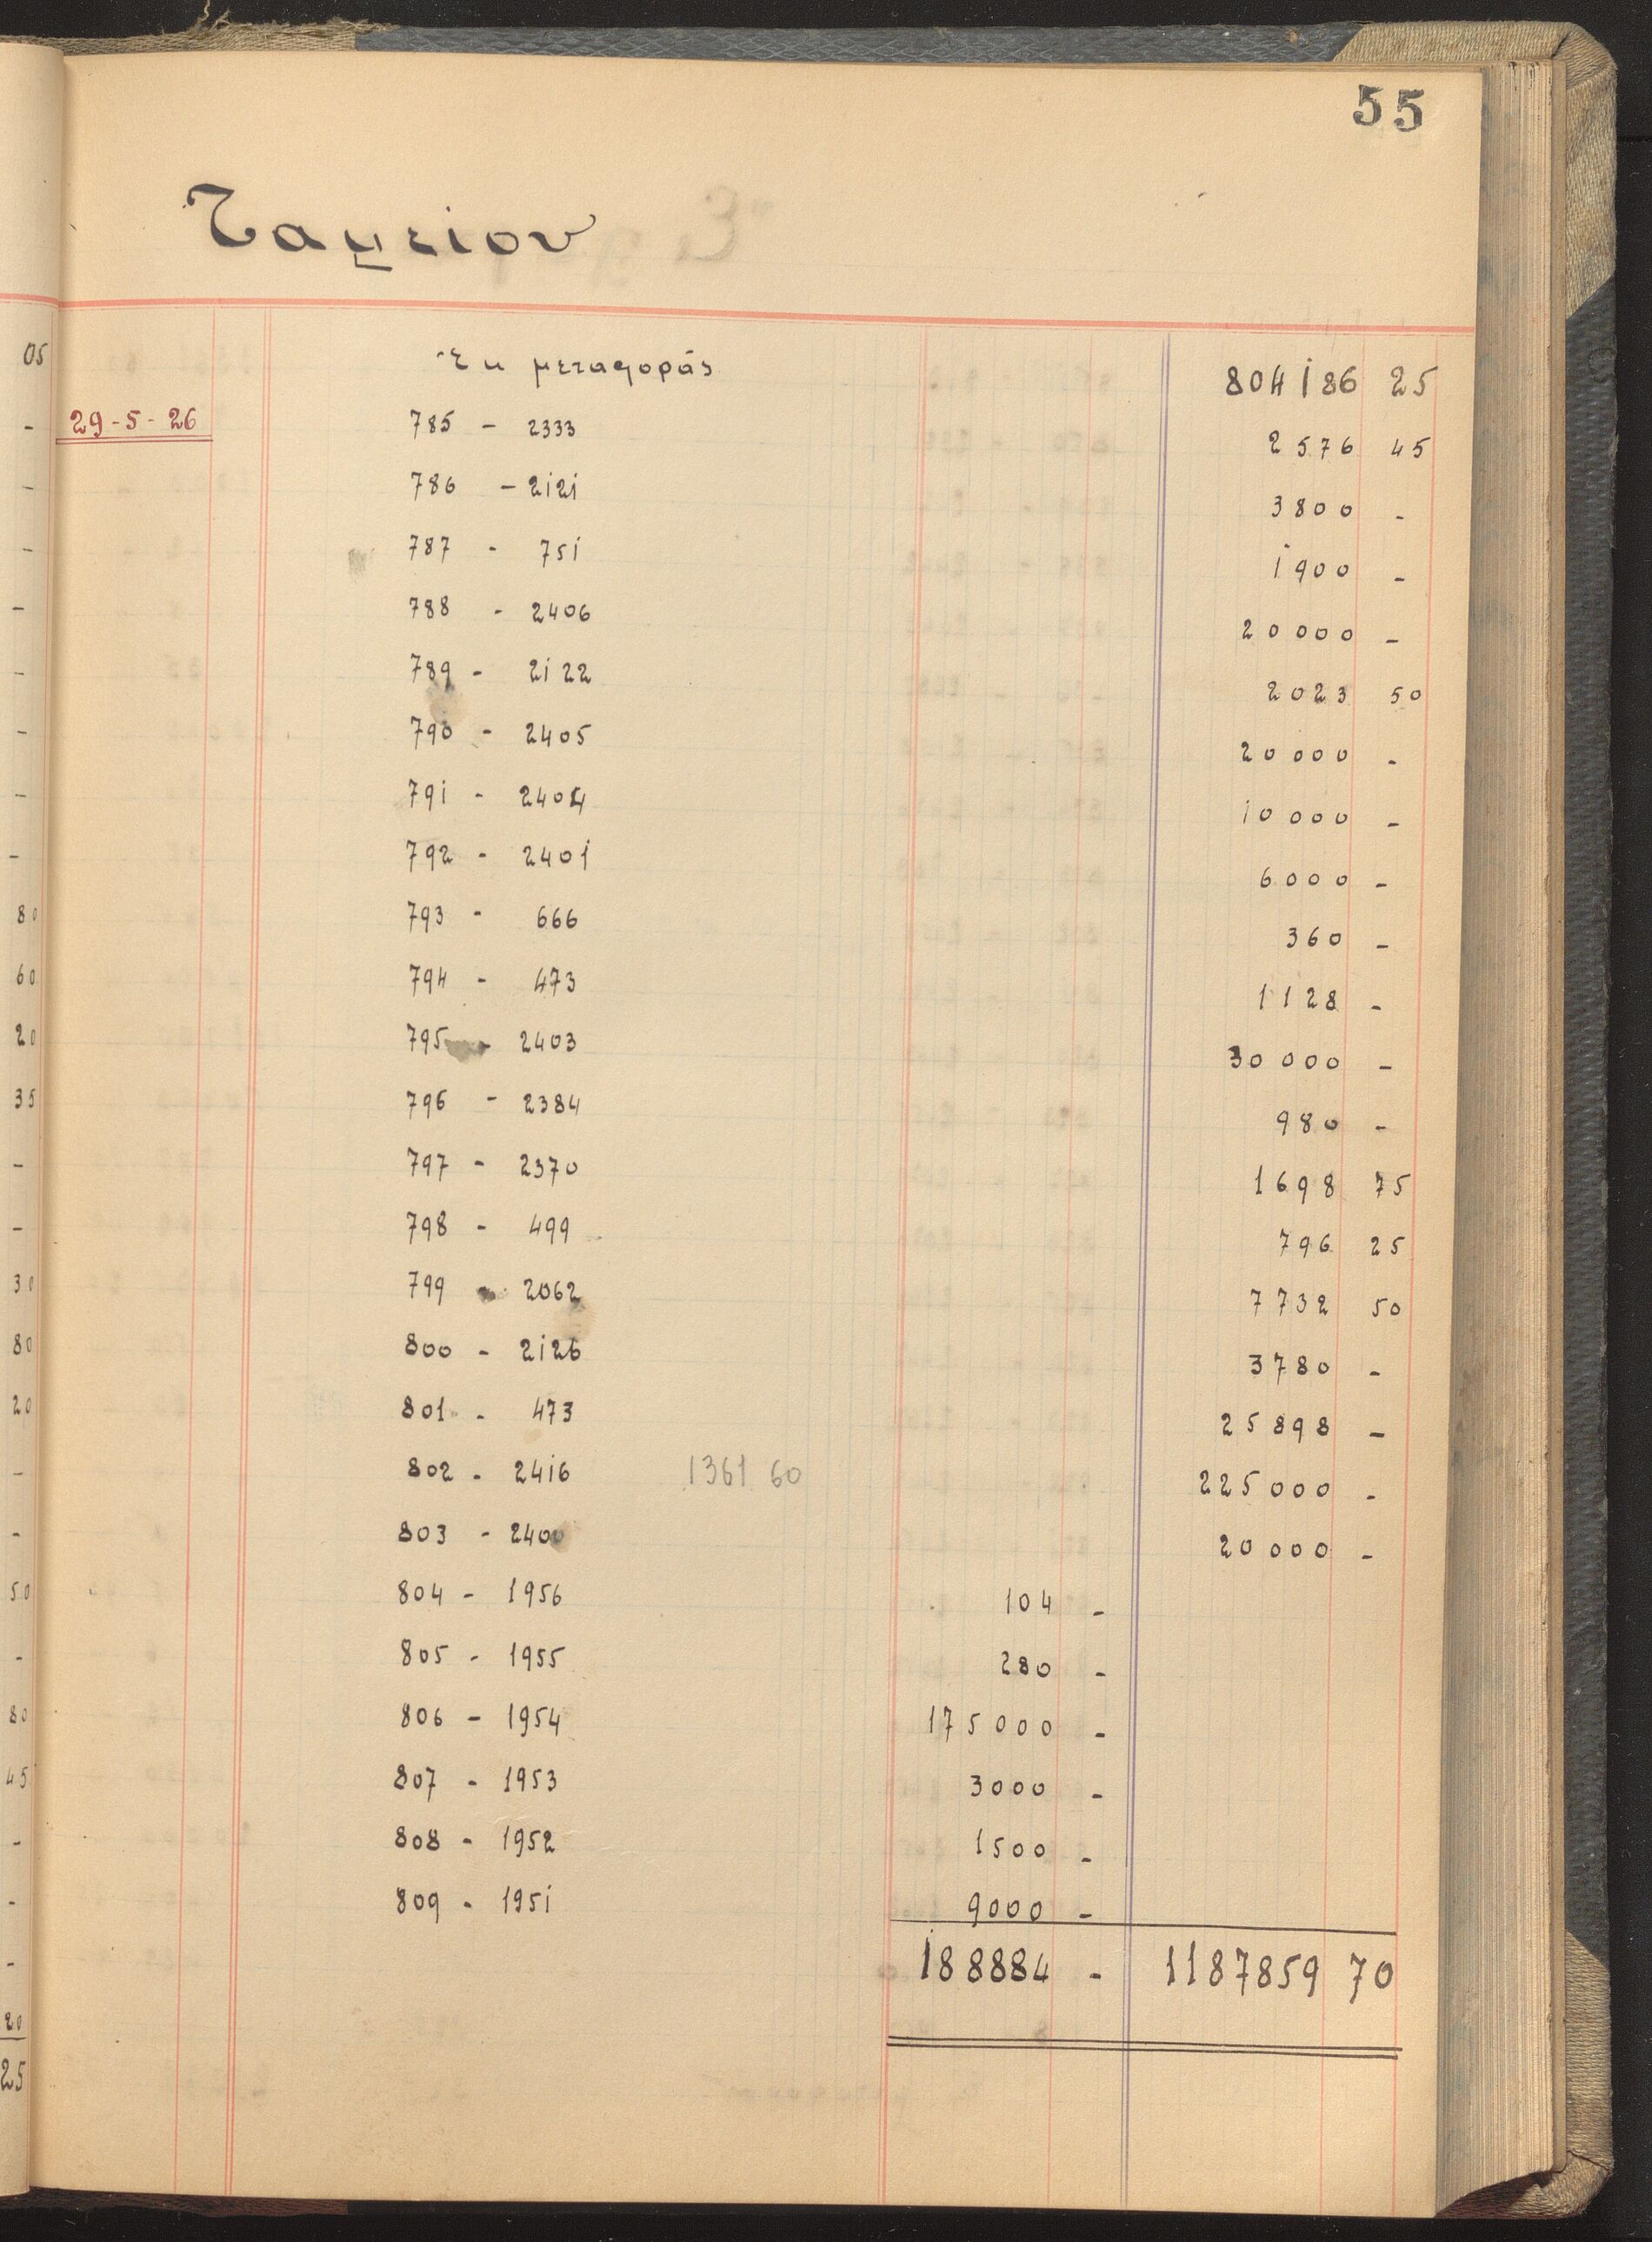 55
Ταμείον
Ἐκ μεταφοράς 804186 25
29-5-26 785 - 2333 2576 45
786 - 2121 3800 -
787 - 751 1900 -
788 - 2406 20000 -
789 - 2122 2023 50
790 - 2405 20000 -
791 - 2404 10000 -
792 - 2401 6000 -
793 - 666 360 -
794 - 473 1128 -
795 - 2403 30000 -
796 - 2384 980 -
797 - 2370 1698 75
798 - 499 796 25
799 - 2062 7732 50
800 - 2126 3780 -
801 - 473 25898 -
802 - 2416 1361 60 225000 -
803 - 2400 20000 -
804 - 1956 104 -
805 - 1955 280 -
806 - 1954 175000 -
807 - 1953 3000 -
808 - 1952 1500 -
809 - 1951 9000 -
188884 - 1187859 70
05
80
60
20
35
30
80
20
50
80
45
20
25